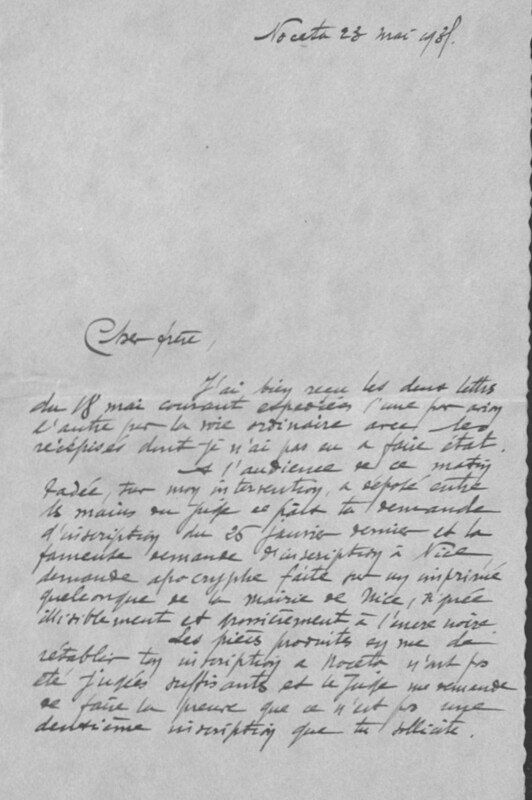 Noceta 23 mai 1935.
Cher frère,
J'ai bien recu les deux lettres
du 18 mai courant expediées l'une par avion
l'autre par la voie ordinaire avec les
récépisés dont je n'ai pas eu a faire état.
A l'audience de ce matin
Tadée, sur mon intervention, a deposé entre
les mains du Juge de paix ta demande
d'inscription du 26 janvier dernier et la
fameuse demande d'inscription à Nice,
demande apocryphe faite sur un imprimé
quelconque de la mairie de Nice, signée
illisiblement et grossièrement à l'encre noire.
Les pièces produites en vue de
rétablir ton inscription a Noceta n'ont pas
été jugées suffisants et le Juge me demande
de faire la preuve que ce n'est pas une
deuxième inscription que tu sollicite.